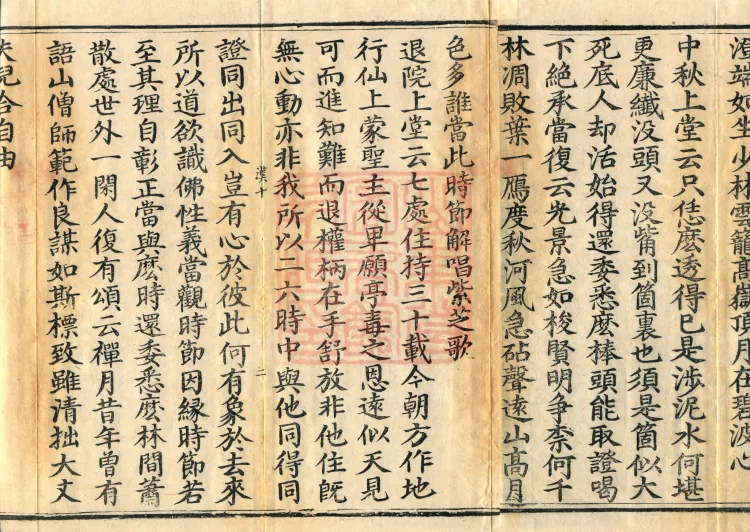 澄端如生少林雪籠高嶽頂月在碧波心
中秋上堂云只恁麽透得已是涉泥水何堪
更廉纖没頭又没觜到箇裏也須是箇似大
死底人却活始得還委悉麽棒頭能取證喝
下絶承當復云光景急如梭賢明争柰何千
林凋敗葉一鴈度秋河風急砧聲遠山高月
色多誰當此時節解唱紫芝歌
退院上堂云七處住持三十載今朝方作地
行仙上蒙聖主從卑願亭毒之恩遠似天見
可而進知難而退權柄在手舒放非他住旣
無心動亦非我所以二六時中與他同得同
漢十 二
證同出同入豈有心於彼此何有象於去來
所以道欲識佛性義當觀時節因縁時節若
至其理自彰正當與麽時還委悉麽林間蕭
散處世外一閑人復有頌云禪月昔年曽有
語山僧師範作良謀如斯標致雖清拙大丈
夫兒合自由